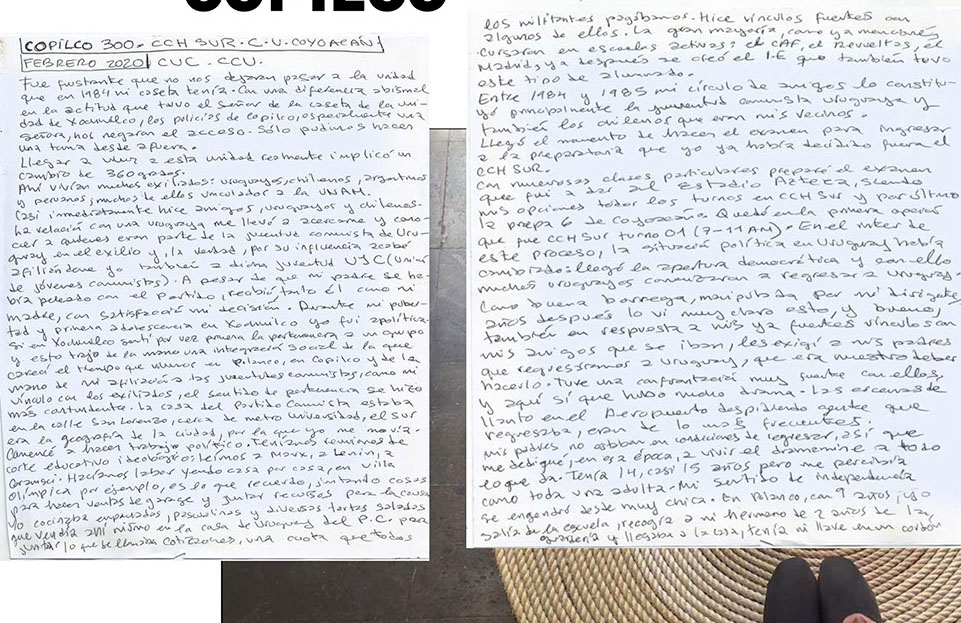 COPILCO
COPÍLCO 300. CCH SUR. C.U. COYOACÁN
FEBRERO 2020 CUC. CCU.
Fue frustante que no nos dejaran pasar a la unidad
que en 1984 mi caseta tenía. Con una diferencia abismal
en la actitud que tuvo el señor de la caseta de la uni-
dad de Xochimilco, los policías de Copilco, especialmente una
señora, nos negaron el acceso. Sólo pudimos hacer
una toma desde afuera.
Llegar a vivir a esta unidad realmente implicó un
cambio de 360 grados.
Ahí vivían muchos exiliados: uruguayos, chilenos, argentinos
y peruanos, muchos de ellos vinculados a la UNAM.
Casi inmediatamente hice amigos, uruguayos y chilenos.
La relación con una uruguaya me llevó a acercarme y cono-
cer a quienes eran parte de la juventud comunista de Uru-
guay en el exilio y, la verdad, por su influencia acabé
afiliándome yo también a dicha juventud UJC (Unión
de jóvenes comunistas). A pesar de que mi padre se ha-
bía peleado con el Partido, recibió tanto él como mi
madre, con satisfacción mi decisión. Durante mi puber-
tad y primera adolescencia en Xochimilco yo fui apolítica.
Si en Xochimilco sentí por vez primera la pertenencia a un grupo
y esto trajo de la mano una integración social de la que
careció el tiempo que vivimos en Polanco, en Copilco y de la
mano de mi afiliación a las juventudes comunistas, como mi
vínculo con los exiliados, el sentido de pertenencia se hizo
más contundente. La casa del Partido Comunista estaba
en la calle San Lorenzo, cerca de metro Universidad, el sur
era la geografía de la ciudad, por la que yo me movía.
Comencé a hacer trabajo político. Teníamos reuniones de
corte educativo ideológico: leímos a Marx, a Lenin, a
Gramsci. Hacíamos labor yendo casa por casa, en Villa
Olímpica por ejemplo, es lo que recuerdo, juntando cosas
para hacer ventas de garage y juntar recursos para la causa.
Yo cocinaba empanadas, pascualinas y diversas tartas saladas
que vendía ahí mismo en la casa de Uruguay del P.C. para
juntar lo que se llamaba cotizaciones, una cuota que todos
los militantes pagábamos. Hice vínculos fuertes con
algunos de ellos. La gran mayoría, como ya mencioné
cursaron en escuelas activas: el CAF, el Revueltas, el
Madrid, y ya después se creó el I.E que también tuvo
este tipo de alumnado.
Entre 1984 y 1985 mi círculo de amigos lo constitu-
yó principalmente la juventud comunista uruguaya y
también los chilenos que eran mis vecinos.
Llegó el momento de hacer el examen para ingresar
a la preparatoria que yo ya había decidido fuera el
CCH SUR.
Con numerosas clases particulares preparé el examen
que fui a dar al Estadio Azteca, siendo
mis opciones todos los turnos en CCH Sur y por último
la prepa 6 de Coyoacán. Quedé en la primera opción
que fue CCH Sur turno 01 (7-11 AM). En el inter de
este proceso, la situación política en Uruguay había
cambiado: llegó la apertura democrática y con ello
muchos uruguayos comenzaron a regresar a Uruguay.
Como buena borrega, manipulada por mi dirigente,
años después lo vi muy claro esto, y bueno,
también en respuesta a mis ya fuertes vínculos con
mis amigos que se iban, les exigí a mis padres
que regresáramos a Uruguay, que era nuestro deber
hacerlo. Tuve una confrontación muy fuerte con ellos,
y aquí sí que hubo mucho drama. Las escenas de
llanto en el Aeropuerto despidiendo gente que
regresaba, eran de lo más frecuentes.
Mis padres no estaban en condiciones de regresar, así que
me dediqué, en esa época, a vivir el dramamine a todo
lo que da. Tenía 14, casi 15 años pero me percibía
como toda una adulta. Mi sentido de independencia
se engendró desde muy chica. En Polanco, con 9 años, yo
salía de la escuela, recogía a mi hermano de 2 años de la
guardería y llegaba a la casa, tenía mi llave en un cordón